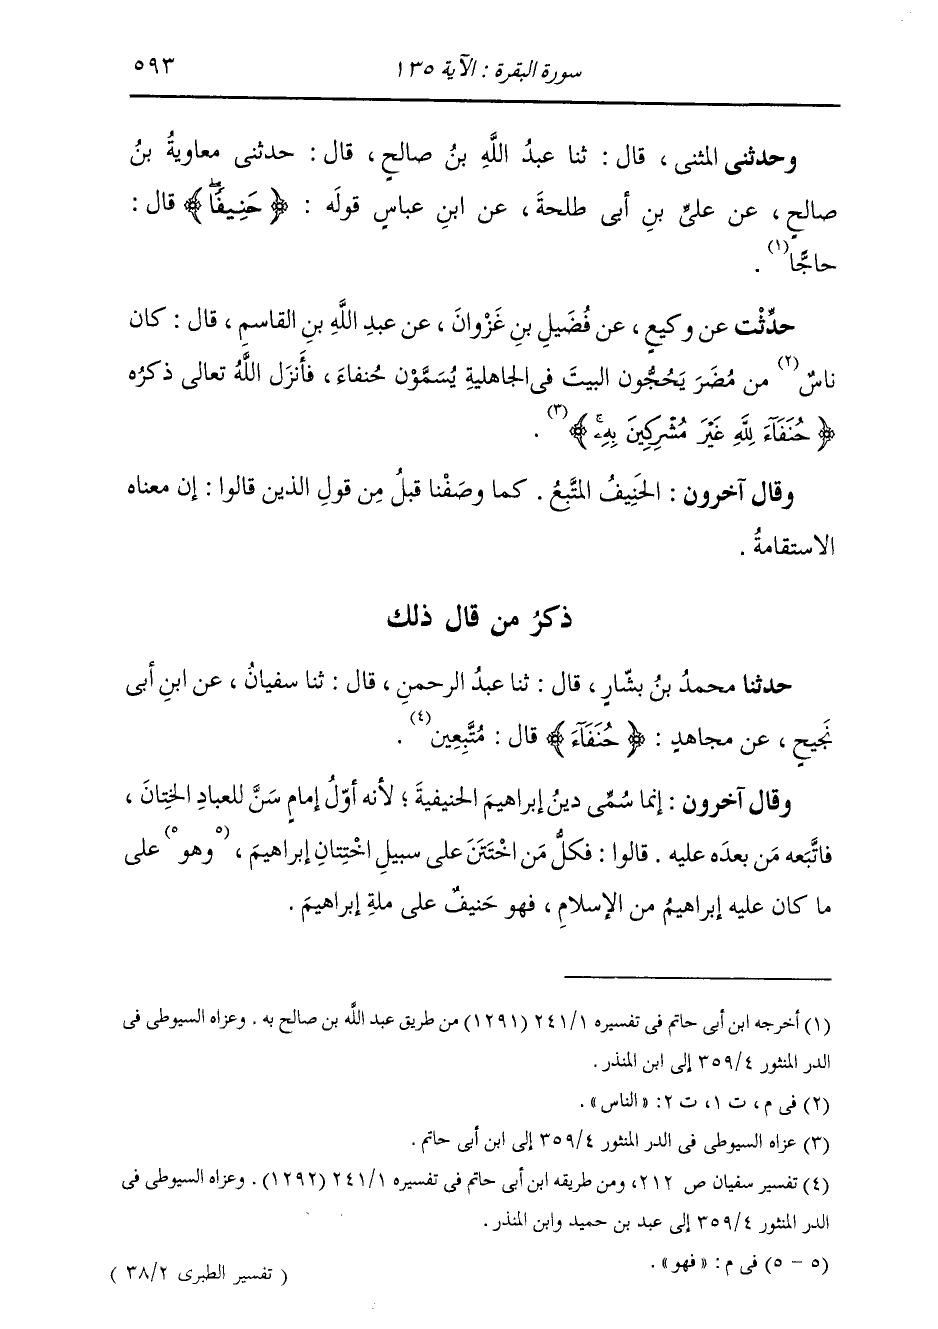 سورة البقرة : الآية ١٣٥
٥٩٣
وحدثنى المثنى ، قال : ثنا عبدُ اللَّهِ بنُ صالحٍ ، قال : حدثنى معاويةُ بنُ
صالحٍ ، عن علىِّ بنِ أبى طلحةَ ، عن ابنِ عباسٍ قولَه : ﴿ حَنِيفًاۖ ﴾ قال :
حاجًّا(١) .
حدِّثْت عن وكيعٍ ، عن فُضَيلِ بنِ غَزْوانَ ، عن عبدِ اللَّهِ بنِ القاسمِ ، قال : كان
ناسٌ(٢) من مُضَرَ يَحُجُّون البيتَ فى الجاهليةِ يُسَمَّوْن حُنفاءَ ، فأَنزَل اللَّهُ تعالى ذكرُه
﴿ حُنَفَآءَ لِلَّهِ غَيْرَ مُشْرِكِينَ بِهِۦۚ ﴾(٣) .
وقال آخرون : الحَنِيفُ المتَّبِعُ . كما وصَفْنا قبلُ مِن قولِ الذين قالوا : إن معناه
الاستقامةُ .
ذكرُ من قال ذلك
حدثنا محمدُ بنُ بشّارٍ ، قال : ثنا عبدُ الرحمنِ ، قال : ثنا سفيانُ ، عن ابنِ أبى
نَجيحٍ ، عن مجاهدٍ : ﴿ حُنَفَآءَ ﴾ قال : مُتَّبِعِين(٤) .
وقال آخرون : إنما سُمِّى دينُ إبراهيمَ الحنيفيةَ ؛ لأنه أوّلُ إمامٍ سَنَّ للعبادِ الختانَ ،
فاتَّبَعه مَن بعدَه عليه . قالوا : فكلُّ مَن اخْتَتَنَ على سبيلِ اخْتِتانِ إبراهيمَ ، (٥ وهو ٥) على
ما كان عليه إبراهيمُ من الإسلامِ ، فهو حَنيفٌ على ملةِ إبراهيمَ .
(١) أخرجه ابن أبى حاتم فى تفسيره ٢٤١/١ (١٢٩١) من طريق عبد اللَّه بن صالح به . وعزاه السيوطى فى
الدر المنثور ٣٥٩/٤ إلى ابن المنذر .
(٢) فى م ، ت ١، ت ٢: «الناس» .
(٣) عزاه السيوطى فى الدر المنثور ٣٥٩/٤ إلى ابن أبى حاتم .
(٤) تفسير سفيان ص ٢١٢، ومن طريقه ابن أبى حاتم فى تفسيره ٢٤١/١ (١٢٩٢) . وعزاه السيوطى فى
الدر المنثور ٣٥٩/٤ إلى عبد بن حميد وابن المنذر .
(٥ - ٥) فى م : «فهو» .
( تفسير الطبرى ٣٨/٢ )